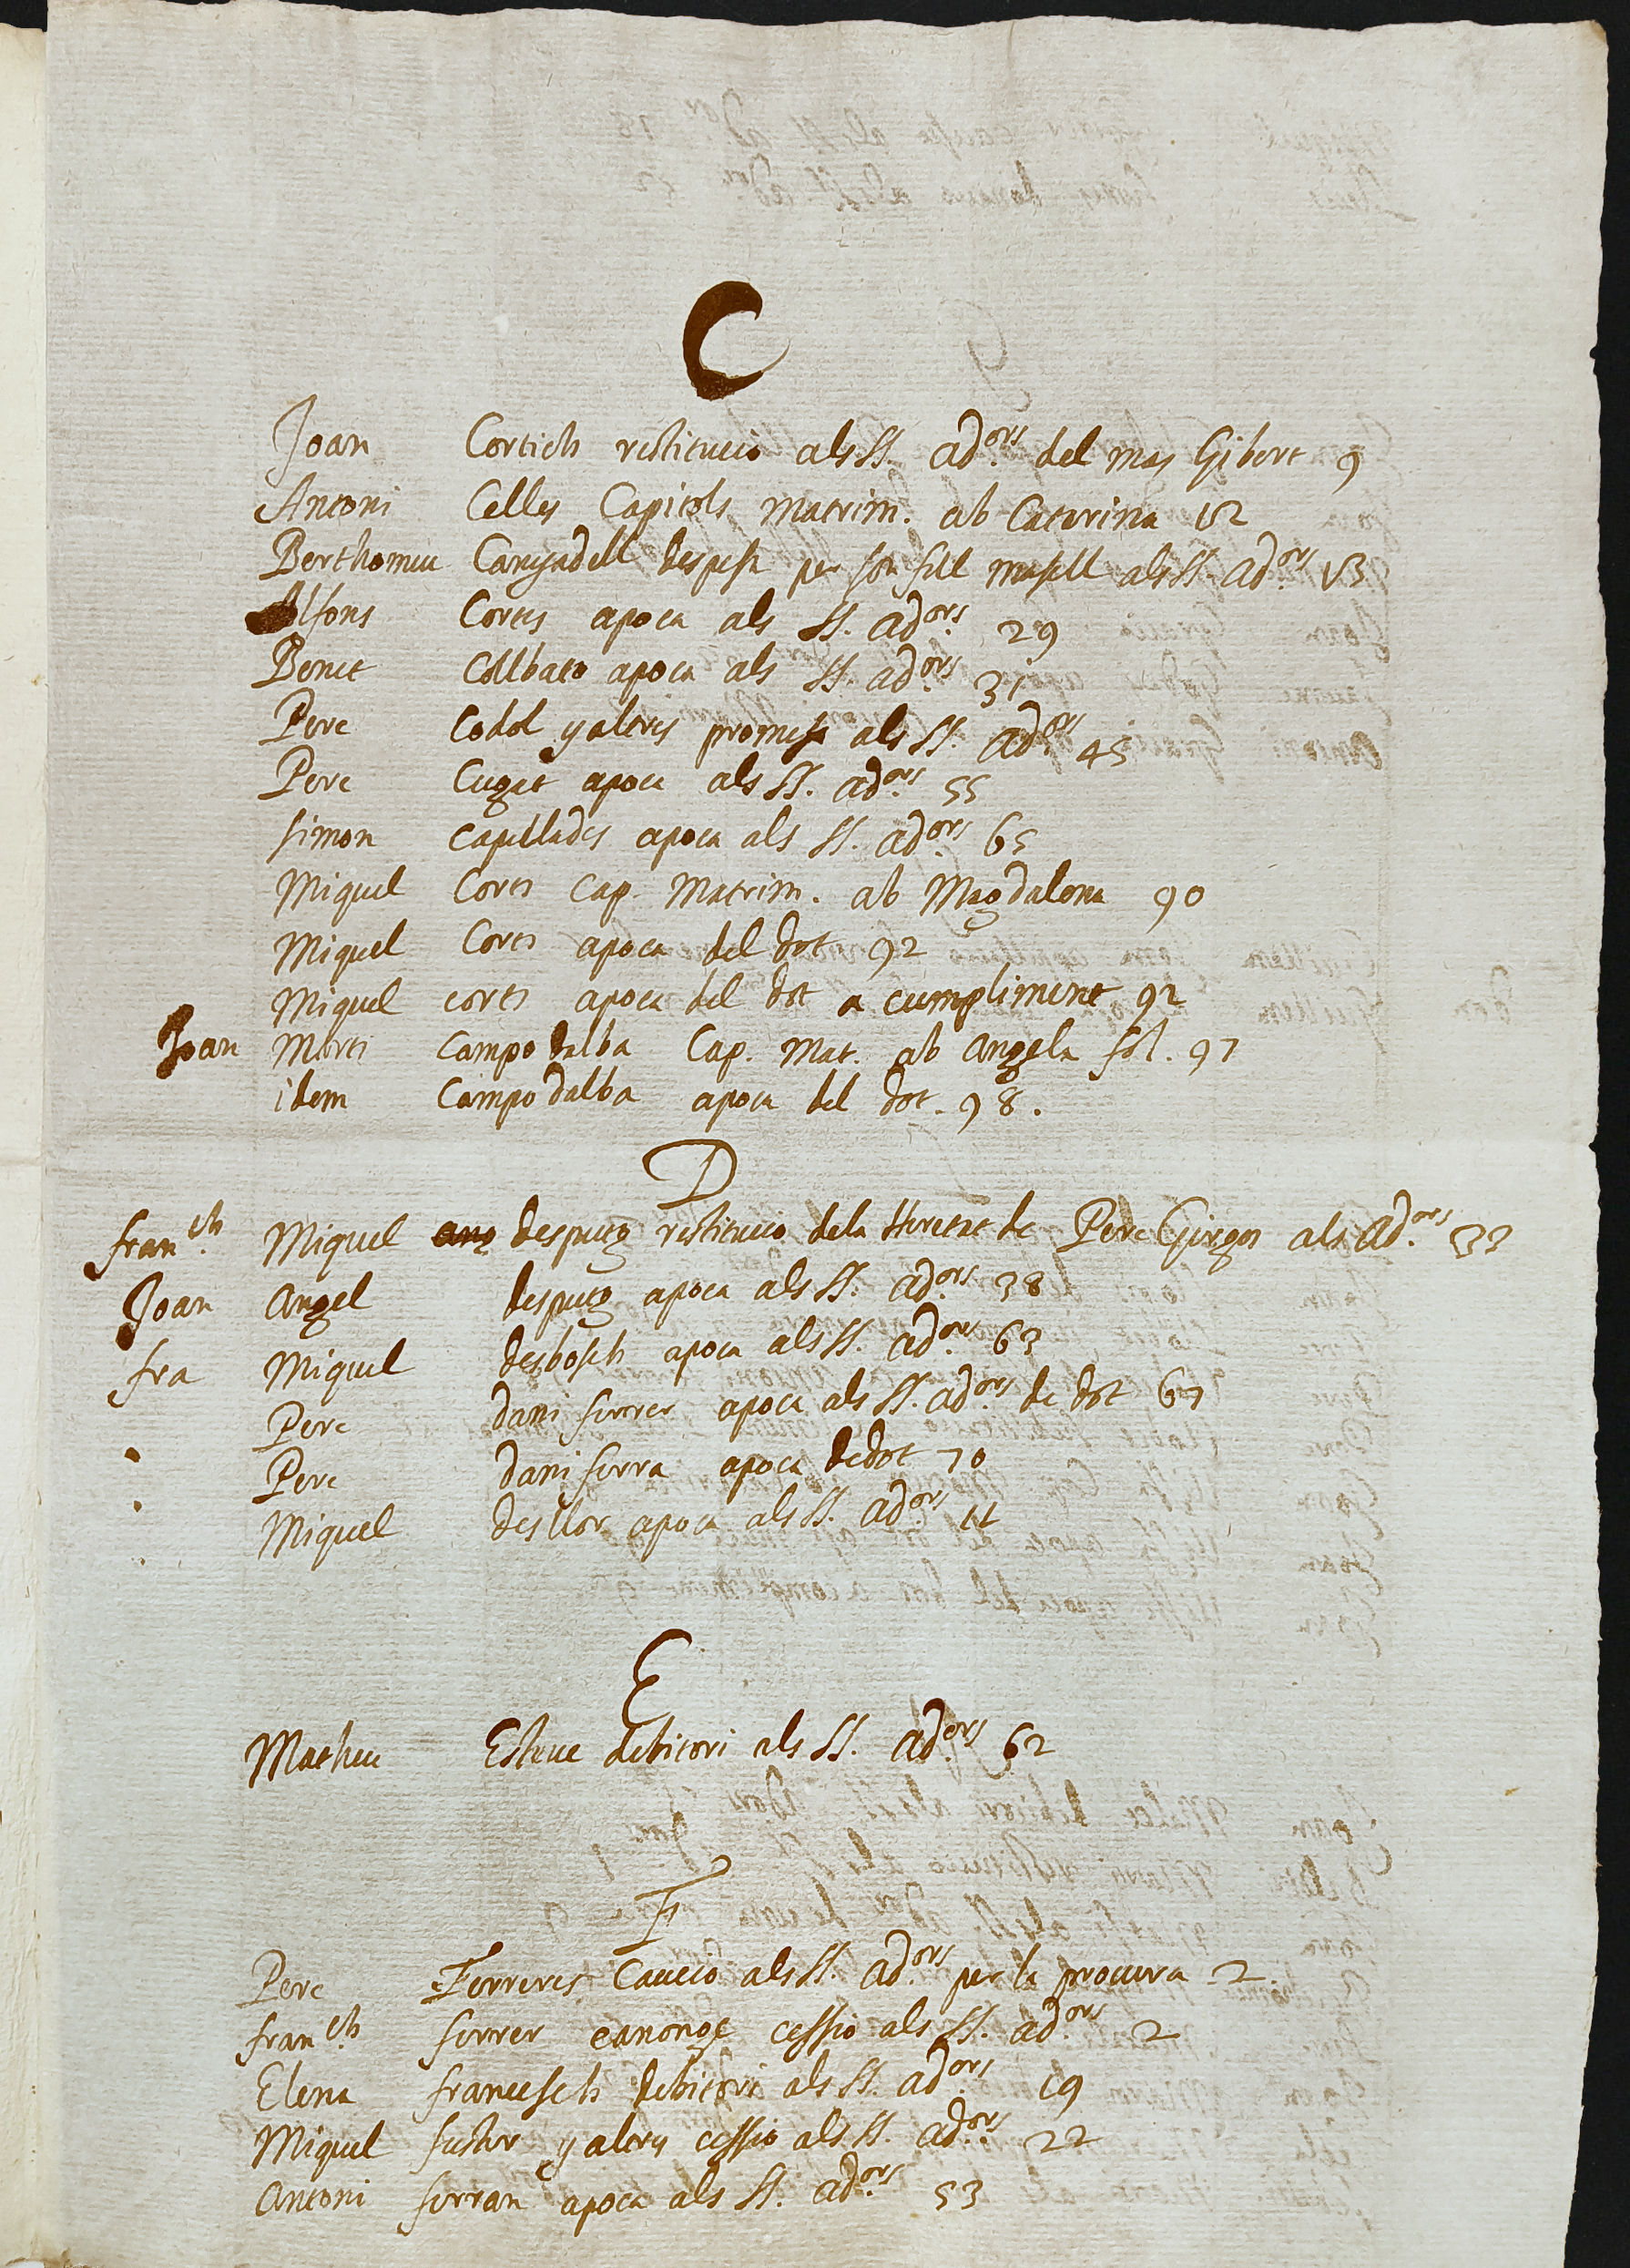 C
Joan Cortich restitucio als SS. ad.ors del mas Gibert 9
Antoni Celles Capitols Matrim. ab Caterina 12
Berthomeu despesa per son fill masell als SS. ad.ors 13
Alfons Cortes apoca als SS. ad.ors 29
Benet Collbato apoca als SS. ad.ors 31
Pere Codol y altres promesa als SS. ad.ors 45
Pere Cugat apoca als SS. ad.ors 55
simon capellades apoca als SS. ad.ors 65
Miquel Cortes Cap. Matrim. ab Magdalena 90
Miquel Cortes apoca del dot 92
Miquel cortes apoca del dot a cumpliment 92
Joan Marti Campo dalba Cap. Mat. ab Angela fol. 97
idem Campo dalba apoca del dot. 98.
D
fran.ch Miquel despuig restitucio dela Heretat de Pere Girgos als ad.ors 33
Joan Angel despuig apoca als SS. ad.ors 38
fra Miquel desbosch apoca als SS. ad.ors 63
Pere dani ferrer apoca als SS. ad.ors de dot 67
Pere dani ferrer apoca de dot 70
Miquel desllor apoca als SS. ad.ors 11
E
Matheu Esteve debitori als SS. ad.ors 62
F
Pere Ferreres Caucio als SS. ad.ors per la procura 2.
fran.ch ferrer canonge cessio als SS. ad.ors 2
Elena francesch debitori als SS. ad.ors 19
Miquel fuster y altres cessio als SS. ad.ors 22
Antoni ferran apoca als SS. ad.ors 53